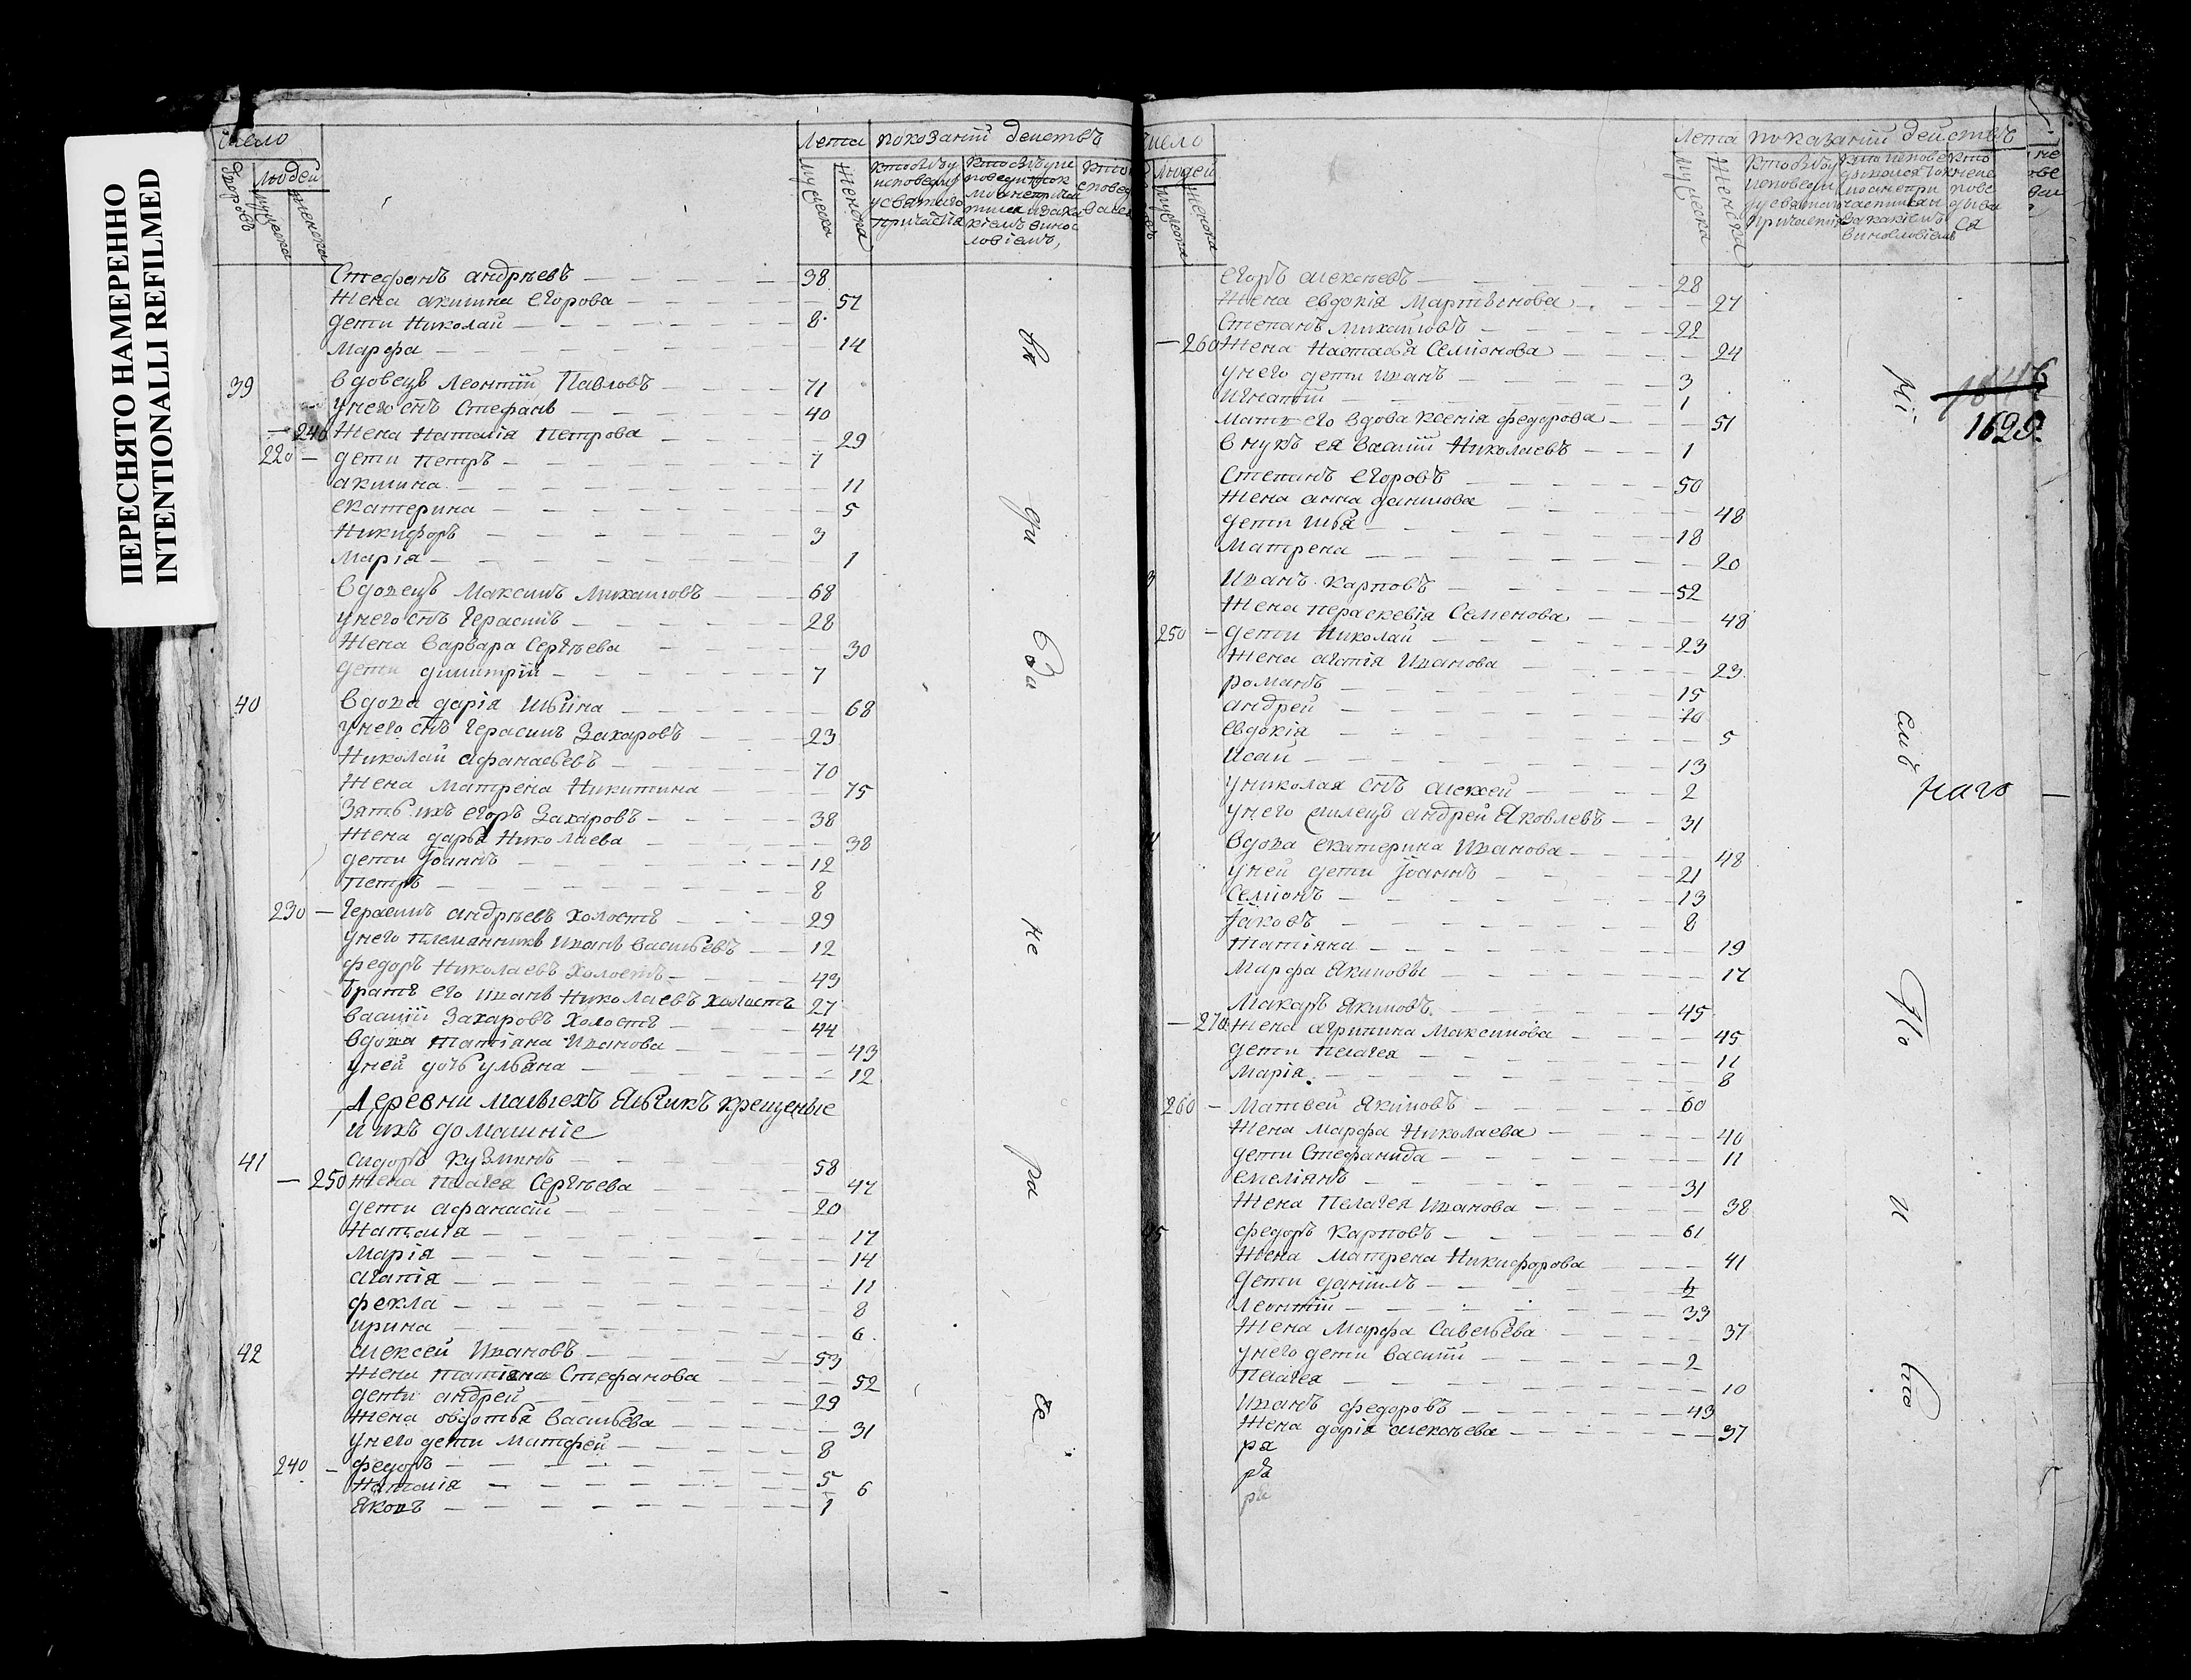 ПЕРЕСНЯТО НАМЕРЕННО
INTENTIONALLI REFILMED
число
людей
Лета показаній действъ
мужеска
женска
Стефанъ андрѣевъ 38
Жена акилина егорова 51
дети Николай 8
Марфа 14
39 вдовецъ Леонтій Павловъ 71
у него снъ Стефанъ 40
240 Жена Наталія Петрова 29
220 дети петръ 7
акилина 11
екатерина 5
Никифоръ 3
Марія 1
вдовецъ Максимъ Михаиловъ 68
у него снъ Герасимъ 28
Жена варвара Сергѣева 30
дети димитрій 7
40 вдова дарія Ильина 68
у него снъ Герасимъ Захаровъ 23
Николай афанасьевъ 70
Жена Матрена Никитина 75
Зять ихъ егоръ Захаровъ 38
Жена дарья Николаева 38
дети Іоаннъ 12
петръ 8
230 Герасимъ андрѣевъ холостъ 29
у него племянникъ Иванъ васильевъ 12
федоръ Николаевъ Холостъ 43
братъ его иванъ Николаевъ холостъ 27
василій Захаровъ Холостъ 44
вдова татіана Иванова 43
у ней дочь ульяна 12
Деревни малыхъ Яльчикъ крещеные
и ихъ домашніе
41 сидоръ кузминъ 58
250 Жена пелагея Сергѣева 47
дети афанасій 20
Наталія 17
Марія 14
агапія 11
фекла 8
ирина 6
42 алексей Ивановъ 53
Жена татіяна Стефанова 52
дети андрей 29
Жена овдотья васильева 31
у него дети Матфей 8
240 федоръ 5
Наталія 6
яковъ 1
число
людей
Лета показаній действъ
мужеска
женска
егоръ алексѣевъ 28
Жена евдокія Мартынова 27
Степанъ Михаиловъ 22
260 Жена Настасья Семіонова 24
у него дети иванъ 3
Игнатій 1
мать его вдова ксенія федорова 51
внукъ ея василій Николаевъ 1
Степанъ егоровъ 50
Жена анна данилова 48
дети илья 18
Матрена 20
Иванъ карповъ 52
Жена параскевія Семенова 48
250 дети Николай 23
Жена агапія Иванова 23
романъ 15
андрей 10
евдокія 5
Исай 13
у николая снъ алексей 2
у него андрей Яковлевъ 31
вдова екатерина Иванова 48
у ней дети Іоаннъ 21
Семіонъ 13
Іаковъ 8
татіяна 19
Марфа Якимовы 17
Макаръ Якимовъ 45
270 Жена агрипина Максимова 45
дети пелагея 11
Марія 8
260 Матвей Якимовъ 60
Жена Марфа Николаева 40
дети Стефанида 11
емеліянъ 31
Жена Пелагея Иванова 38
федоръ карповъ 61
Жена Матрена Никифорова 41
дети даніилъ
Леонтій 33
Жена Марфа Савельева 37
у него дети василій 2
пелагея 10
Иванъ федоровъ 43
Жена дарія алексѣева 37
ра
ра
ра
1629.
наго